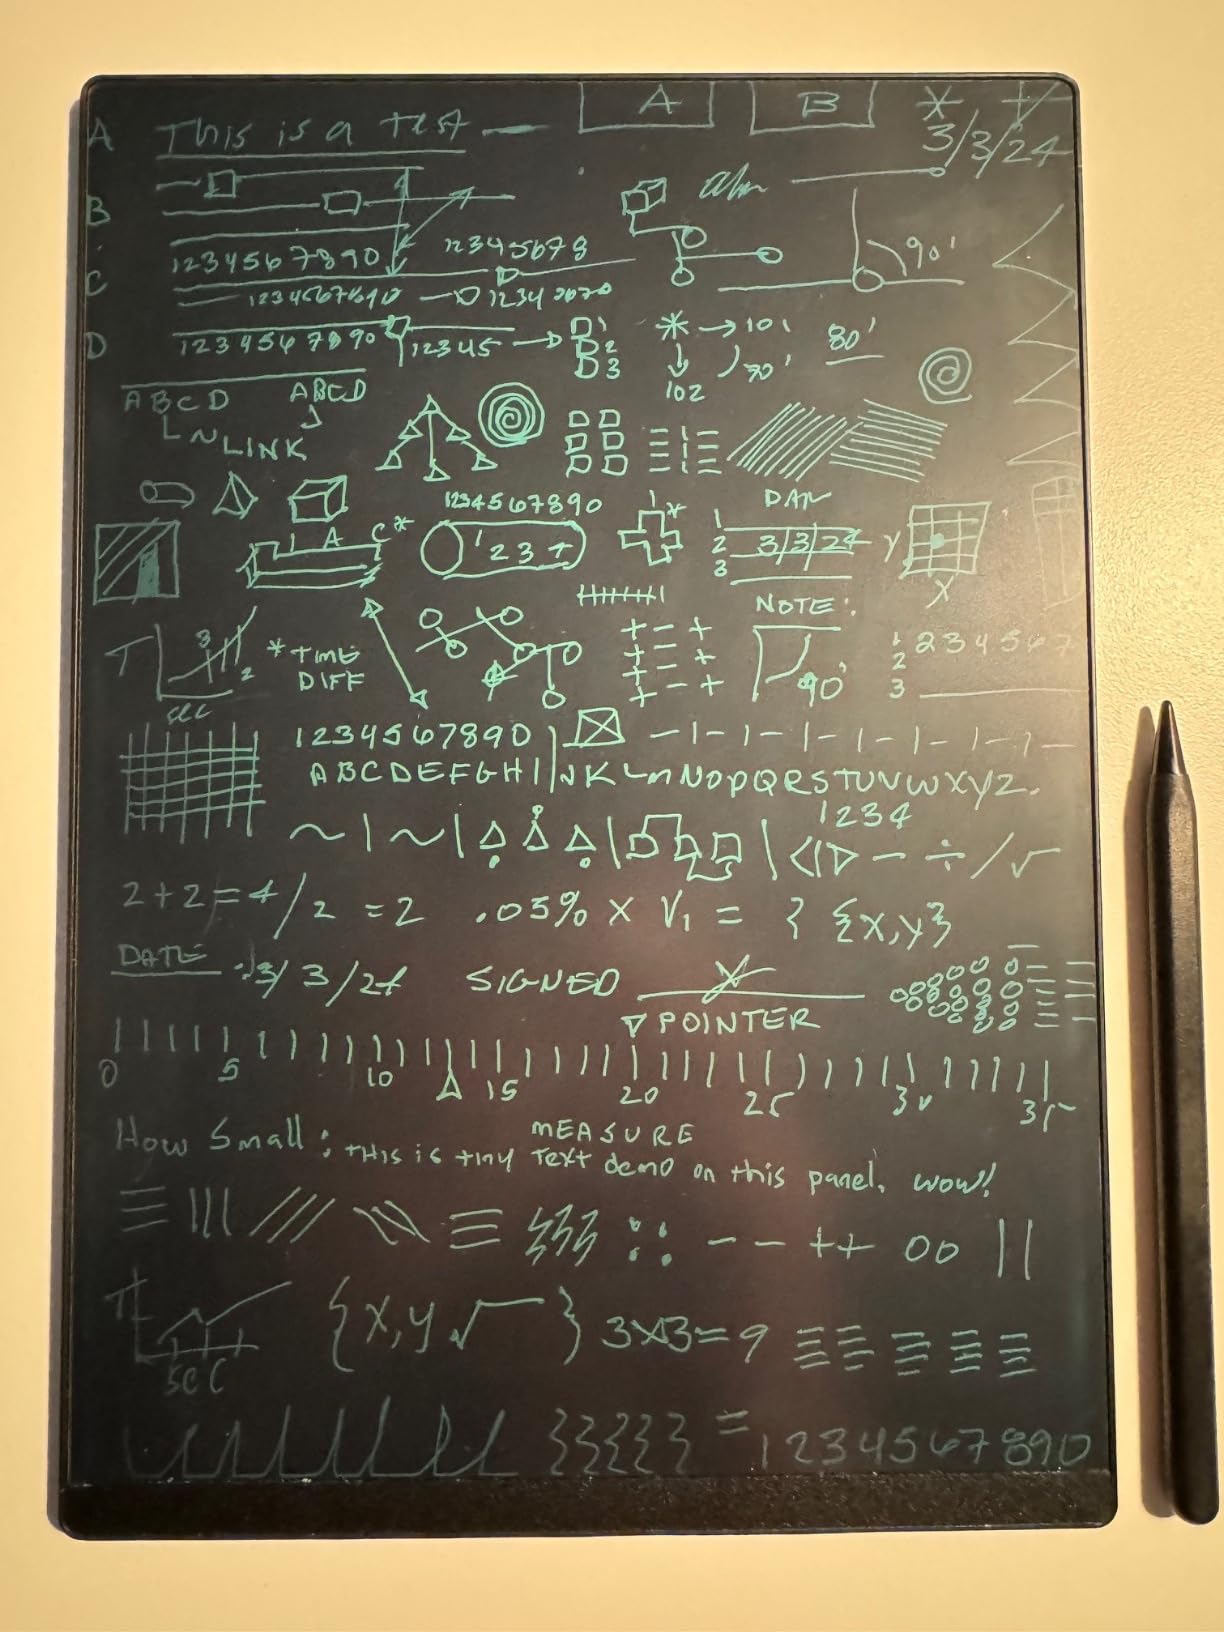 A B * +
A This is a test 3/3/24
B
1234567890 12345678 90'
C
1234567890
D 1234567890 12345 1 * → 101 80'
2 70'
3 102
ABCD ABCD
LINK
1234567890 DAN
A C* 1 2 3 * 1 3/3/24 Y
2
3
X
NOTE:
T 3 * TIME 1 2 3 4 5 6 7
2 DIFF 90' 2
sec 3
1234567890
ABCDEFGHIJKLMNOPQRSTUVWXYZ.
1234
~ | ~ | | | - ÷ / √
2+2=4/2 =2 .05% x V₁ = } {x,y}
DATE 3/3/24 SIGNED X
POINTER
0 5 10 15 20 25 30 35
MEASURE
How Small: this is tiny text demo on this panel. wow!
- - ++ 00 ||
T {x,y √ } 3x3=9
sec
}}}}} = 1234567890